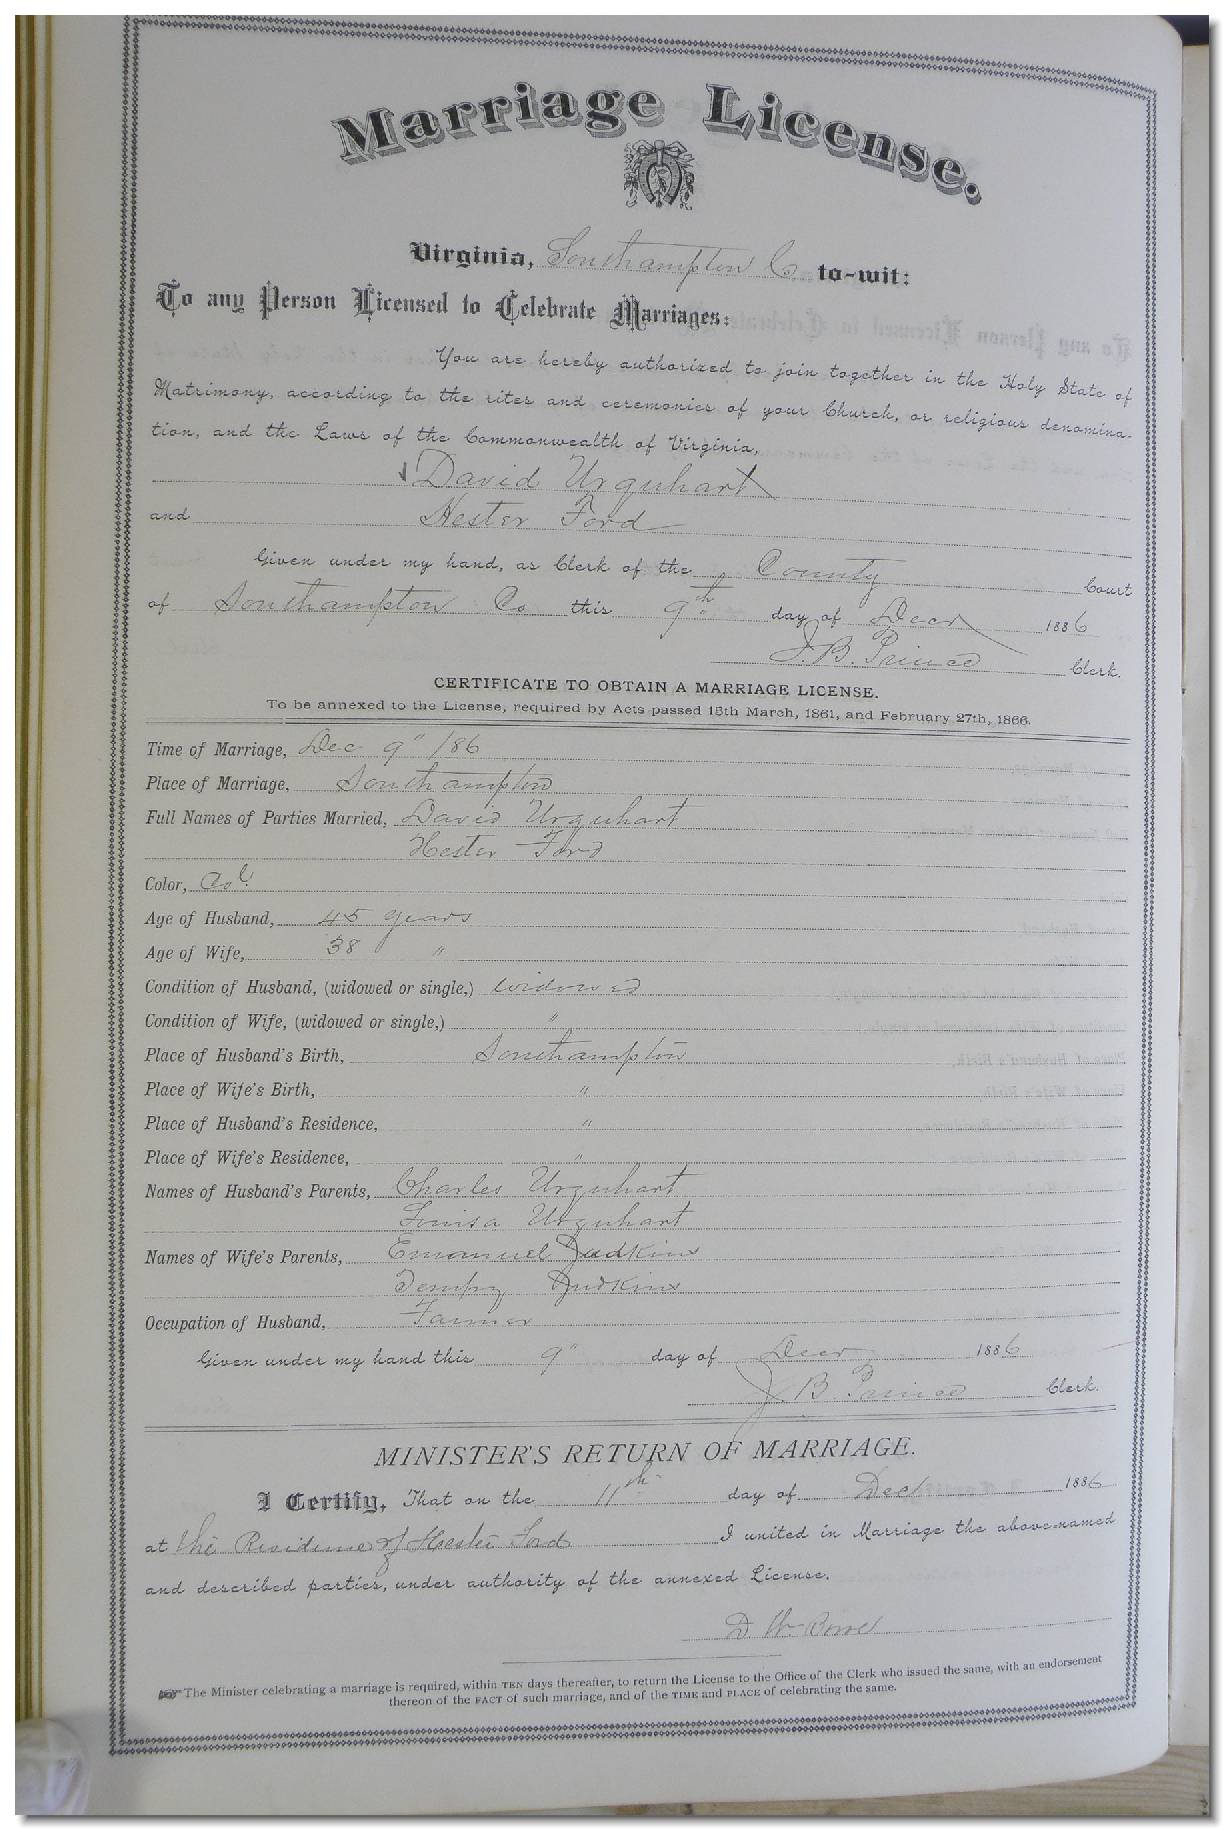 Marriage License.
Virginia, Southampton Co to-wit:
To any Person Licensed to Celebrate Marriages:
You are hereby authorized to join together in the Holy State of
Matrimony, according to the rites and ceremonies of your Church, or religious denomina-
tion, and the Laws of the Commonwealth of Virginia,
David Urquhart
and Hester Ford
Given under my hand, as Clerk of the County Court
of Southampton Co this 9th day of Decr 1886
J. B. Prince Clerk.
CERTIFICATE TO OBTAIN A MARRIAGE LICENSE.
To be annexed to the License, required by Acts passed 15th March, 1861, and February 27th, 1866.
Time of Marriage, Dec 9" /86
Place of Marriage, Southampton
Full Names of Parties Married, David Urquhart
Hester Ford
Color, Col.
Age of Husband, 45 years
Age of Wife, 38 "
Condition of Husband, (widowed or single,) widowed
Condition of Wife, (widowed or single,) "
Place of Husband's Birth, Southampton
Place of Wife's Birth, "
Place of Husband's Residence, "
Place of Wife's Residence, "
Names of Husband's Parents, Charles Urquhart
Louisa Urquhart
Names of Wife's Parents, Emanuel Judkins
Tempy Judkins
Occupation of Husband, Farmer
Given under my hand this 9" day of Decr 1886
J B Prince Clerk.
MINISTER'S RETURN OF MARRIAGE.
I Certify, That on the 11th day of Dec 1886
at the Residence of Hester Ford I united in Marriage the above-named
and described parties, under authority of the annexed License.
D. W.
The Minister celebrating a marriage is required, within TEN days thereafter, to return the License to the Office of the Clerk who issued the same, with an endorsement
thereon of the FACT of such marriage, and of the TIME and PLACE of celebrating the same.